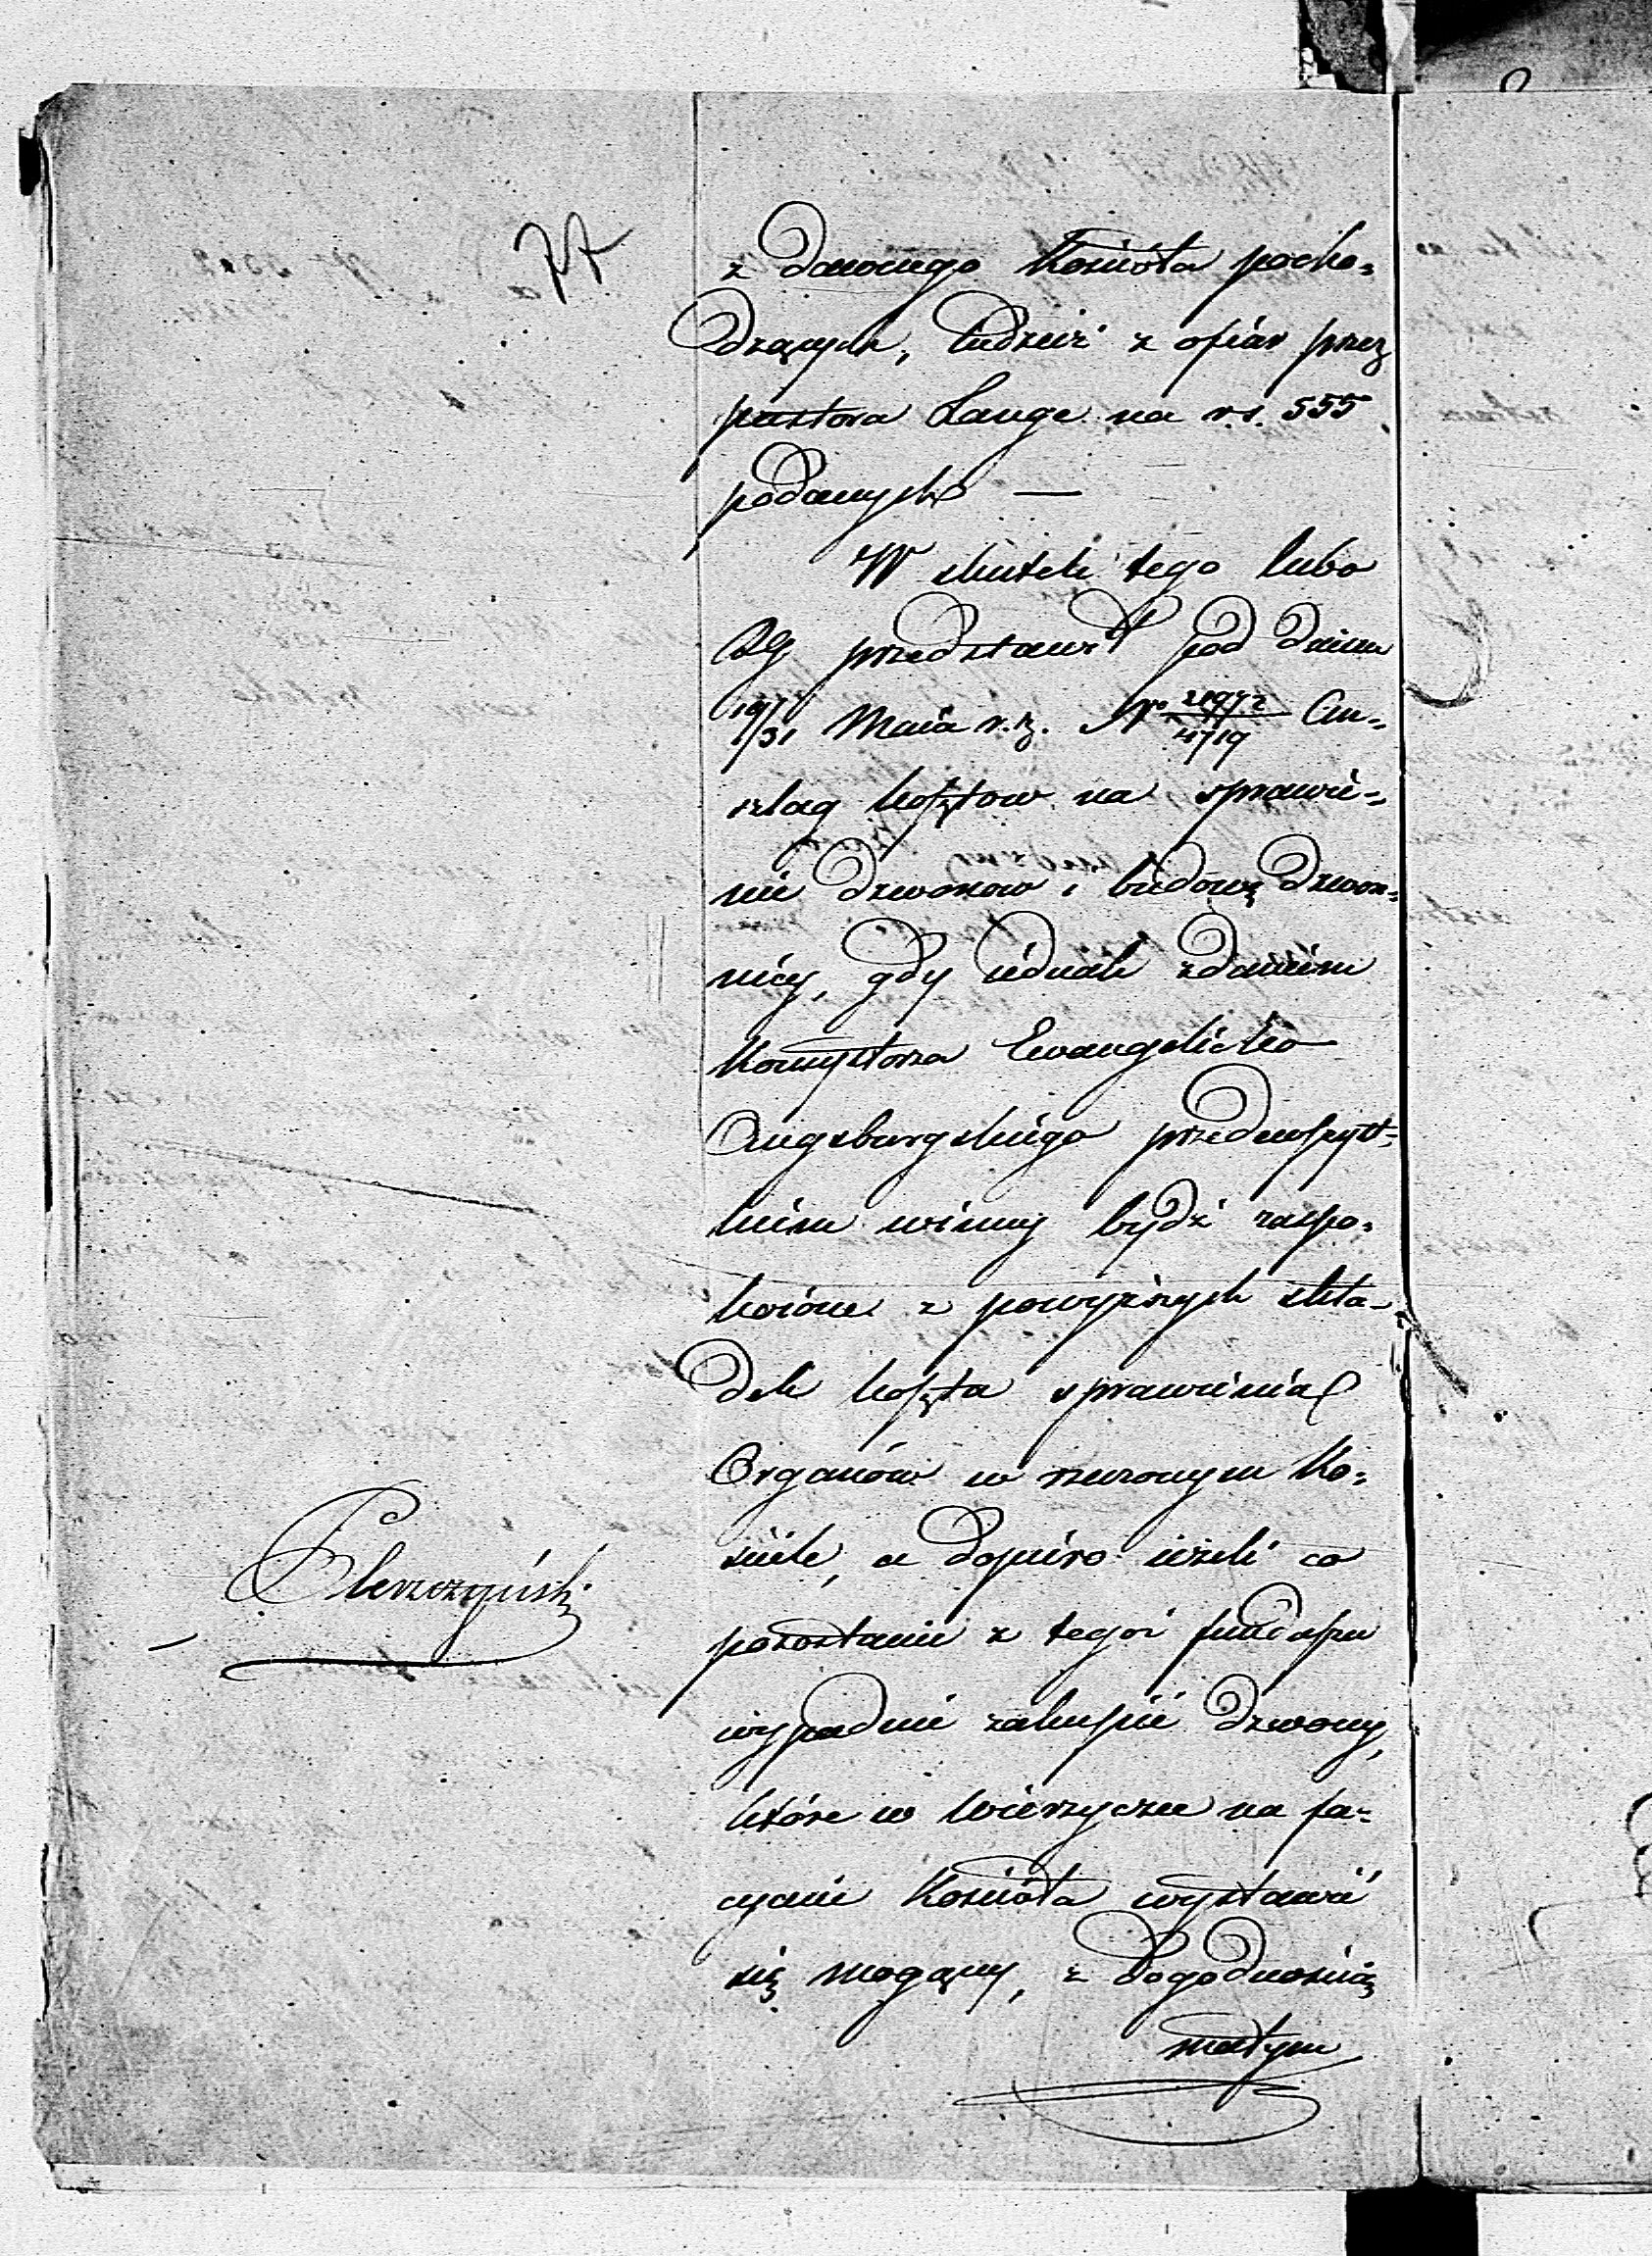 z dawnego Kościoła pocho-
dzących, tudzież z ofiar przez
pastora Lange na r.s. 555
podanych —
W skutek tego lubo
RG przedstawił pod dniem
19/31 Maia r.z. No 21972/4719 An-
szlag kosztow na sprawie-
nie dzwonow i budowę dzwon-
nicy, gdy iednak zdaniem
Konsystorza Ewangelicko
Augsburgskiego przedewszyst-
kiem winny bydź zaspo-
koione z powyższych skła-
dek koszta sprawienia
Organów w rzeczonym Ko-
ściele, a dopiero ieżeli co
pozostanie z tegoż funduszu
wypadnie zakupić dzwony,
które w wierzyczce na fa-
cyacie Kościoła wystawić
się mogący, z dogodnością
małym